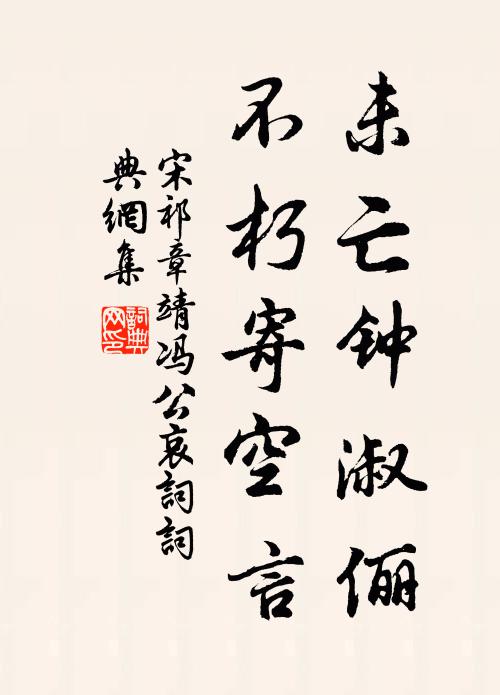 未亡钟淑俪
不朽寄空言
宋祁章靖冯公哀詞詞
典網集
詞典
网印